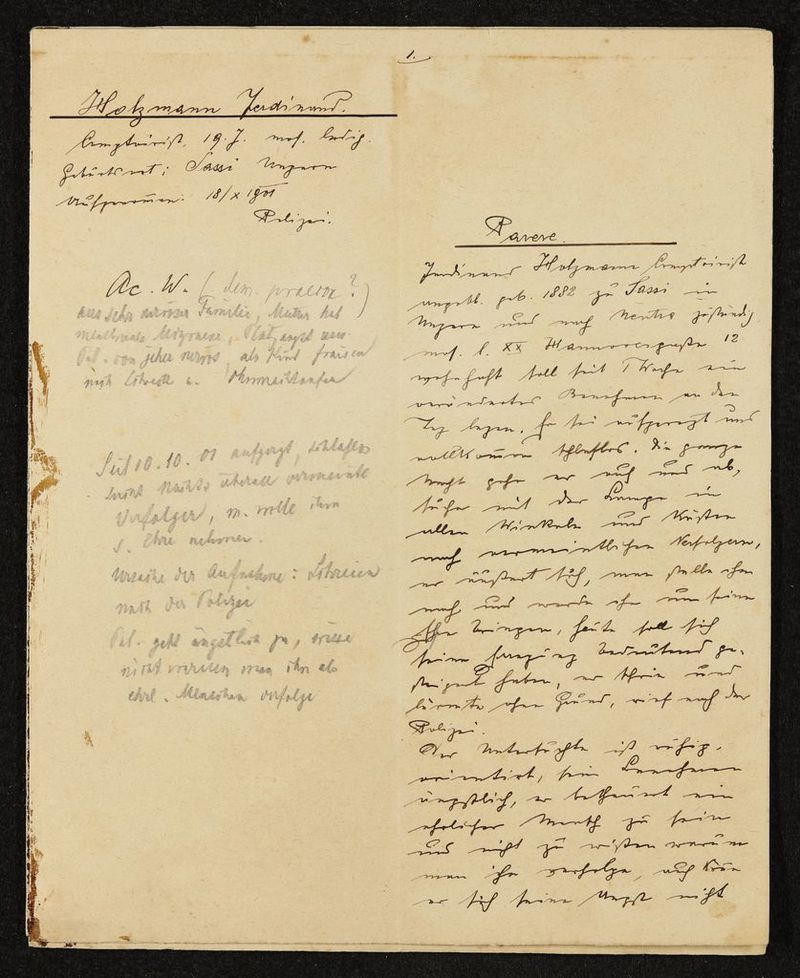 1.
Holzmann Ferdinand.
Comptoirist, 19. J. mos. ledig.
Geburtsort: Sassi Ungarn
Aufgenommen: 18/X 1901
Polizei.
Ac. W. (dem. praecox?)
aus sehr nervöser Familie, Mutter hat
menstruale Migraene, Platzangst
Pat. von jeher nervös, als Kind Fraisen
Ohnmachtsanfälle
Seit 10.10.01 aufgeregt, schlaflos
sucht Nachts überall vermeintl
Verfolger, m. wolle ihm
s. Ehre nehmen.
Ursache der Aufnahme: Schreien
nach der Polizei
Pat. gibt ängstlich zu, wisse
nicht warum man ihn als
ehrl. Menschen verfolge
Parere.
Ferdinand Holzmann Comptoirist
angebl. geb. 1882 zu Sassi in
Ungarn und nach Neutra zuständig
mos. l. XX Hannovergasse 12
wohnhaft soll seit 1 Woche ein
verändertes Benehmen an den
Tag legen. Er sei aufgeregt und
vollkommen schlaflos. Die ganze
Nacht gehe er auf und ab,
suche mit der Lampe in
allen Winkeln und Kästen
nach vermeintlichen Verfolgern,
er äußert sich, man stelle ihm
nach und werde ihn um seine
Ehre bringen, heute soll sich
seine Erregung bedeutend ge-
steigert haben, er schrie und
lärmte ohne Grund, rief nach der
Polizei.
Der Untersuchte ist ruhig,
orientirt, sein Benehmen
ängstlich, er betheuert ein
ehrlicher Mensch zu sein
und nicht zu wissen warum
man ihn verfolge, auch könne
er sich seine Angst nicht